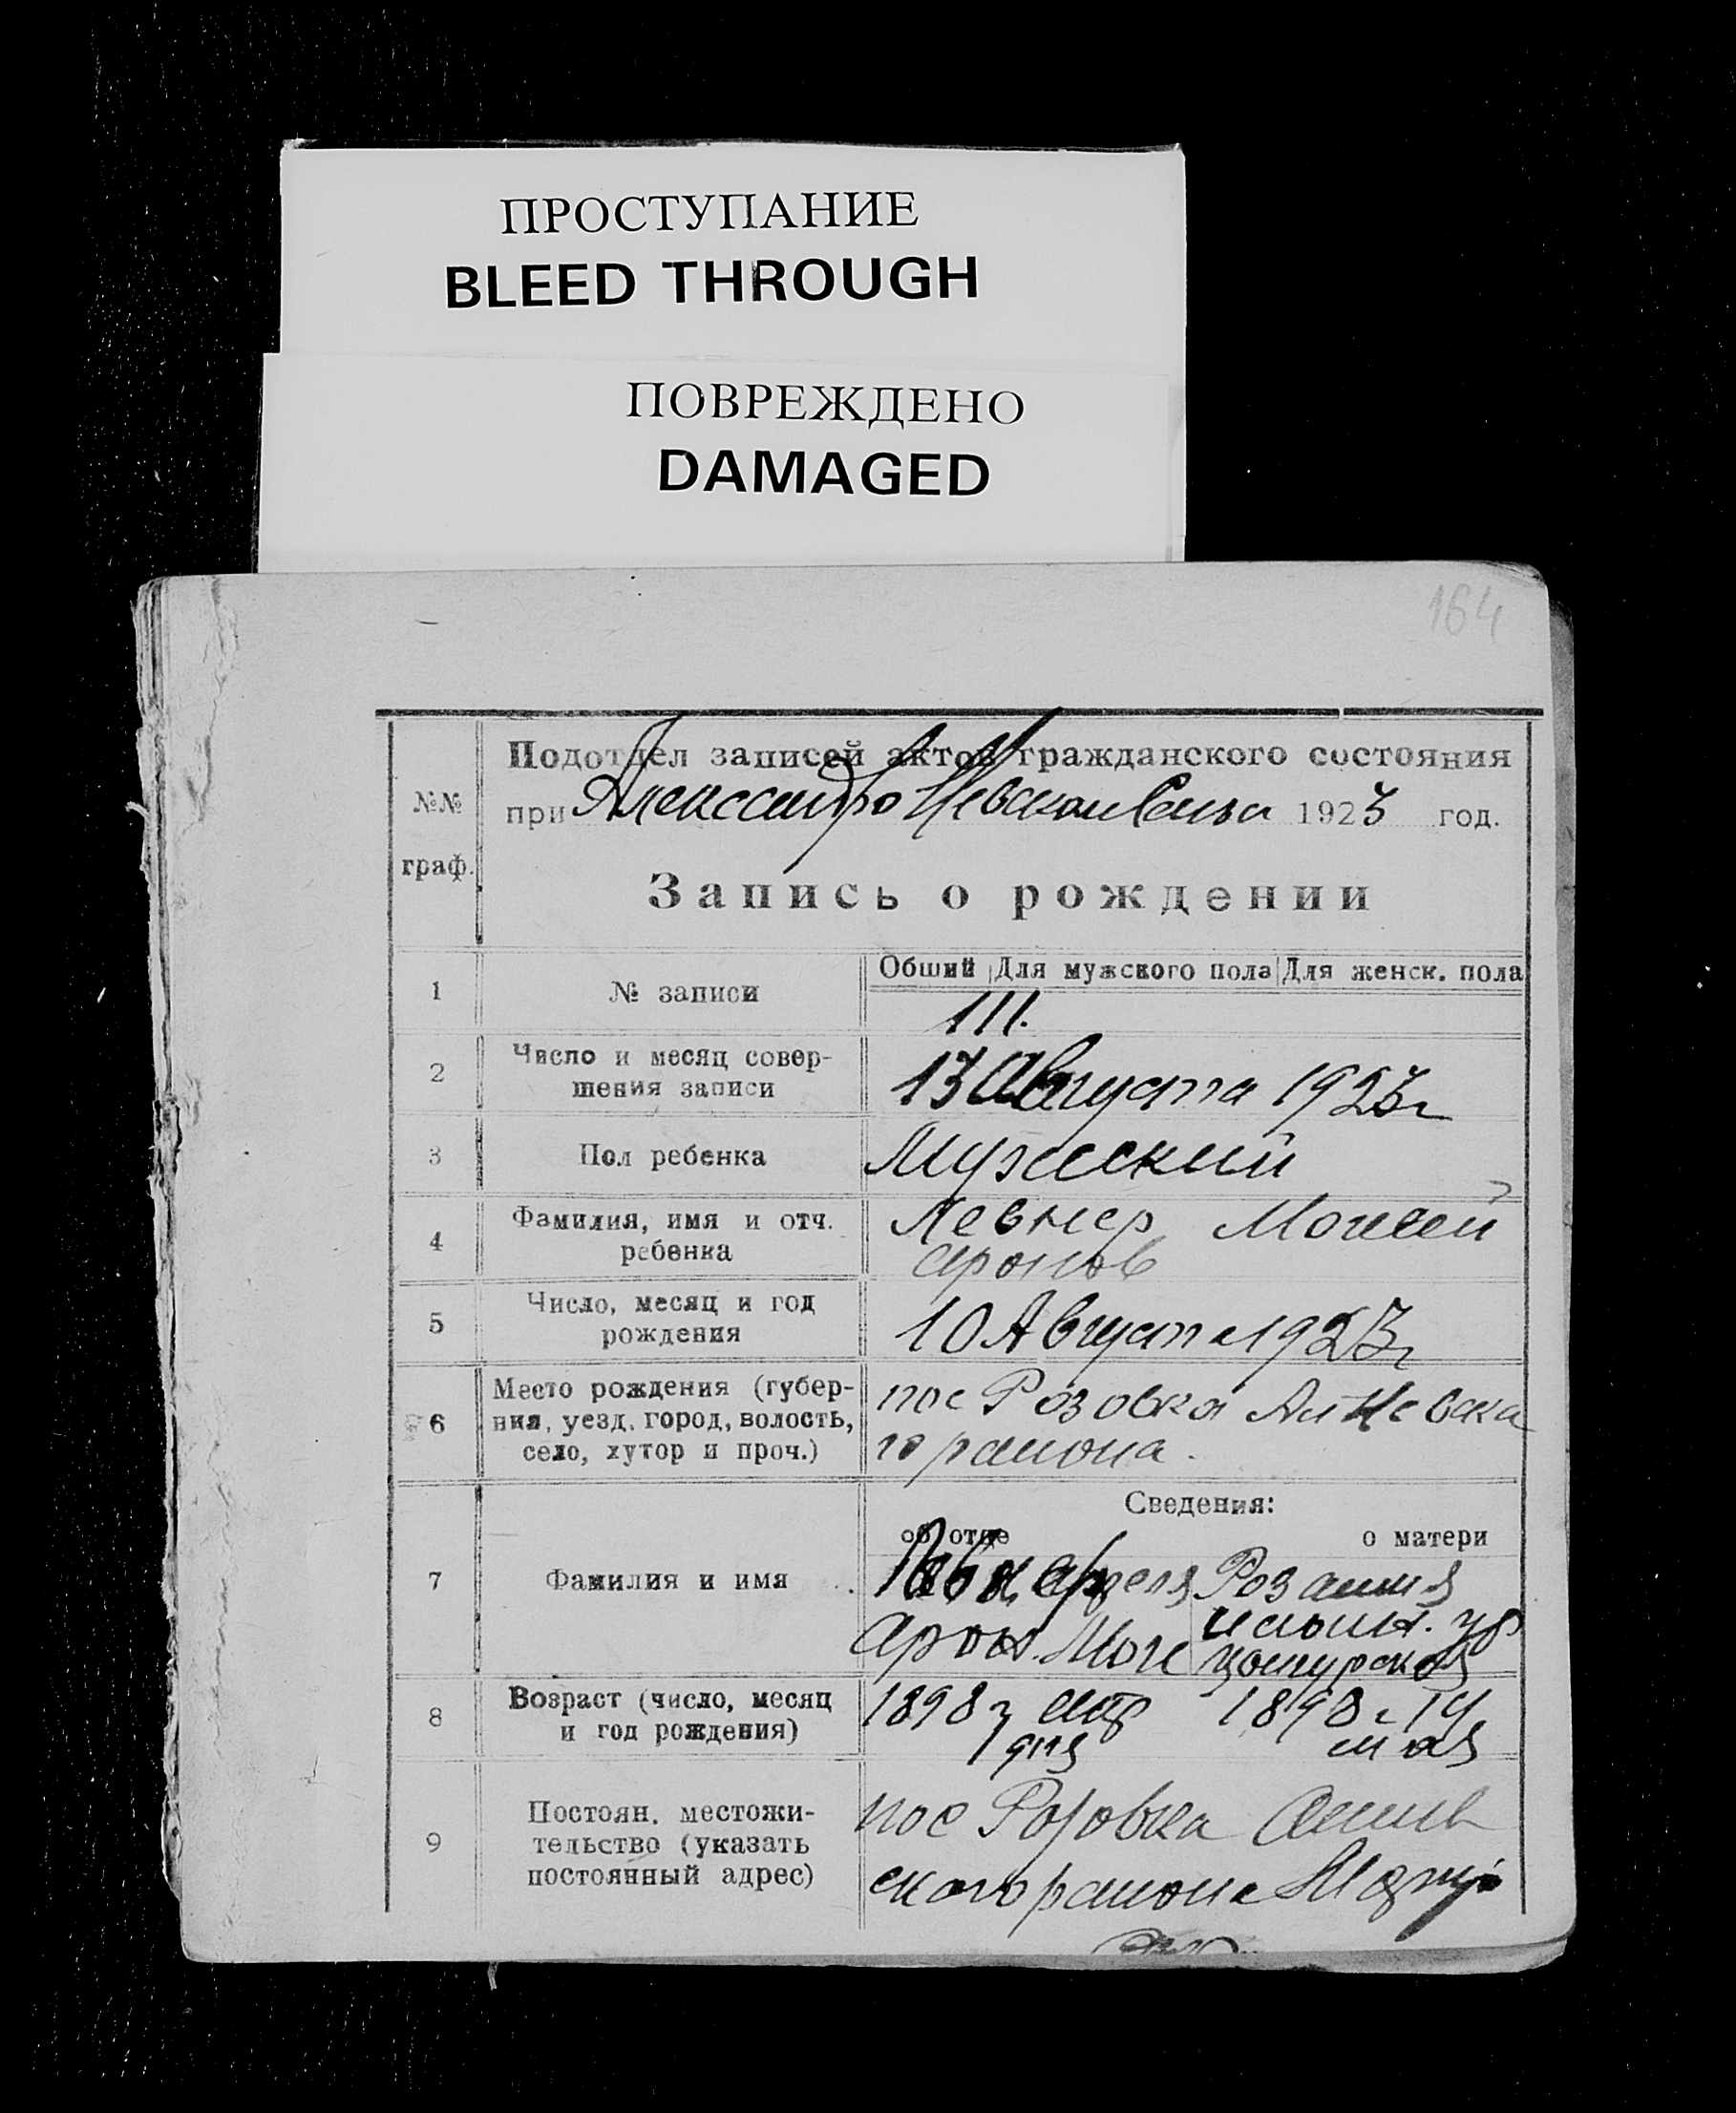 ПРОСТУПАНИЕ
BLEED THROUGH
ПОВРЕЖДЕНО
DAMAGED
164
Подотдел записей актов гражданского состояния
при Александро Невском 1923 год.
№№
граф.
Запись о рождении
Обший Для мужского пола Для женск. пола
1 № записи
111.
2 Число и месяц совер-
шения записи
13 Августа 1923г
3 Пол ребенка Мужеский
4 Фамилия, имя и отч.
ребенка
Левнер Моисей
Аронов
5 Число, месяц и год
рождения
10 Августа 1923г
6 Место рождения (губер-
ния, уезд, город, волость,
село, хутор и проч.)
пос Розовка Ал Невска
го раиона.
Сведения:
об отце о матери
7 Фамилия и имя
Арон
8 Возраст (число, месяц
и год рождения)
1898г 1898г 14
дня мая
9 Постоян. местожи-
тельство (указать
постоянный адрес)
пос Розовка
ского раиона